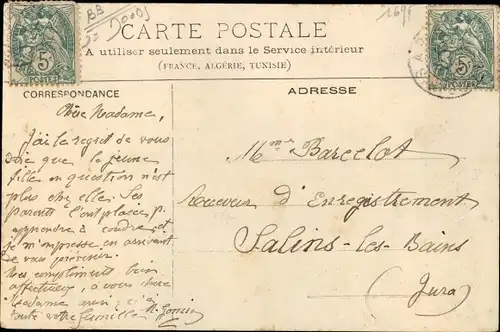 CARTE POSTALE
A utiliser seulement dans le Service intérieur
(FRANCE, ALGÉRIE, TUNISIE)
CORRESPONDANCE
ADRESSE
5c
POSTES
5c
POSTES
Chère Madame,
J'ai le regret de vous
dire que la jeune
fille en question n'est
plus chez elle. Ses
parents l'ont placée p.
apprendre à coudre, et
je m'empresse en arrivant
de vous prévenir.
Mes compliments bien
affectueux, à vous chère
Madame ainsi
toute votre famille
Mme Barcelot
Receveur d'Enregistrement
Salins-les-Bains
(Jura)